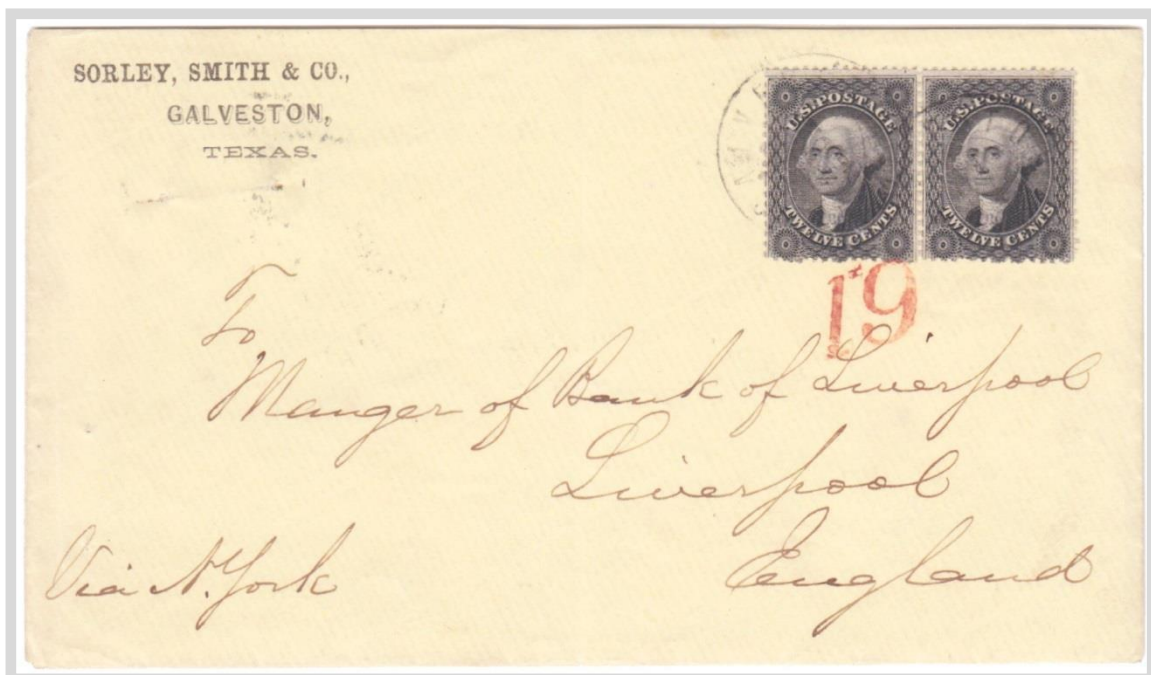 SORLEY, SMITH & CO.,
GALVESTON,
TEXAS.
U.S. POSTAGE
TWELVE CENTS
U.S. POSTAGE
TWELVE CENTS
19
To
Manger of Bank of Liverpool
Liverpool
England
Via N. York